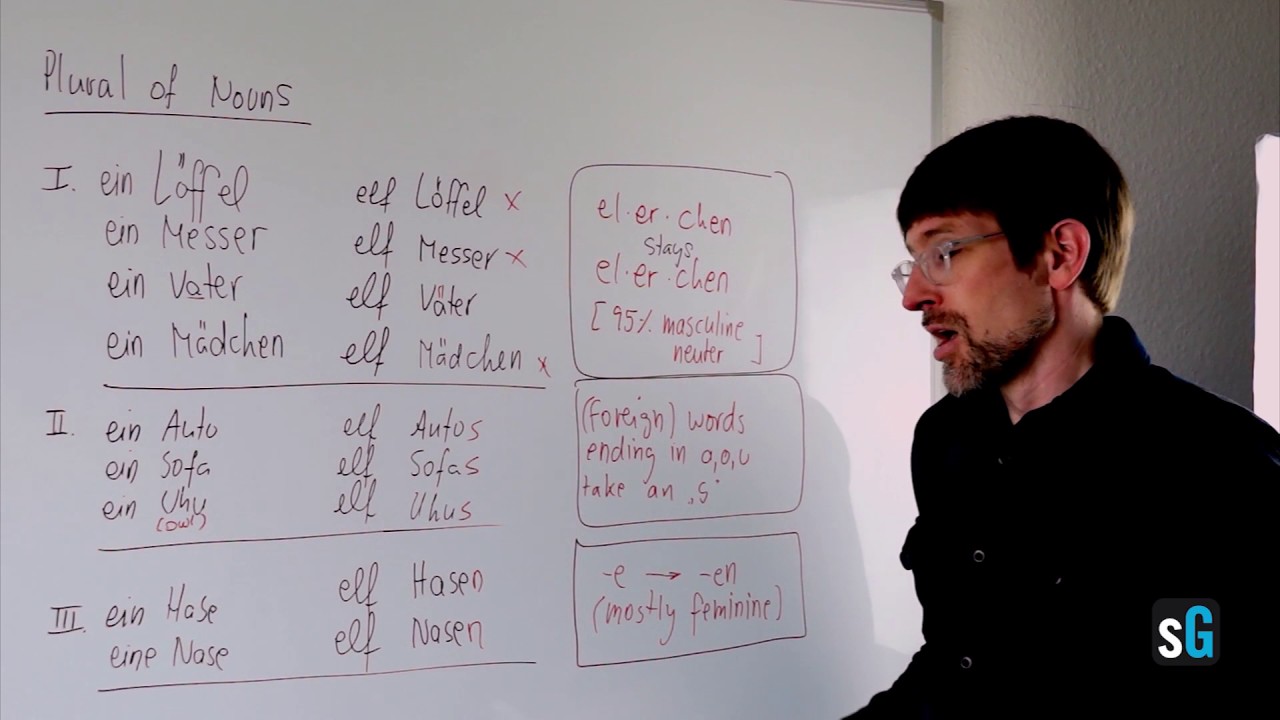 Plural of Nouns
I. ein Löffel elf Löffel x
ein Messer elf Messer x
ein Vater elf Väter
ein Mädchen elf Mädchen x
el·er·chen
stays
el·er·chen
[95% masculine
neuter]
II. ein Auto elf Autos
ein Sofa elf Sofas
ein Uhu elf Uhus
(owl)
(foreign) words
ending in a,o,u
take an „s"
III. ein Hase elf Hasen
eine Nase elf Nasen
-e → -en
(mostly feminine)
sG